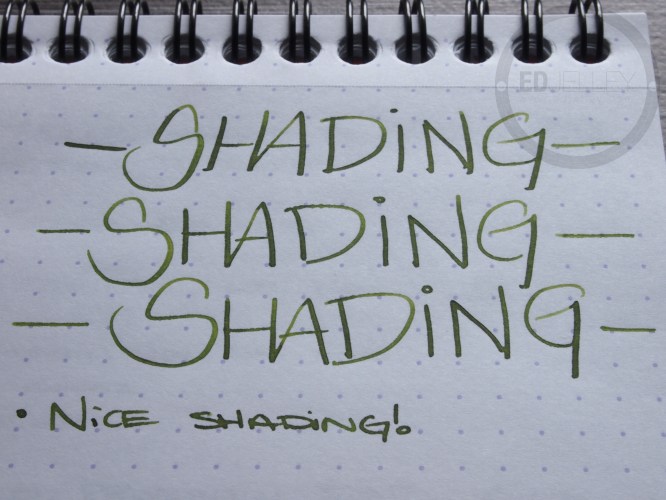 .ED JELLEY
-SHADING-
-SHADING-
-SHADING-
• NiCE SHADING!